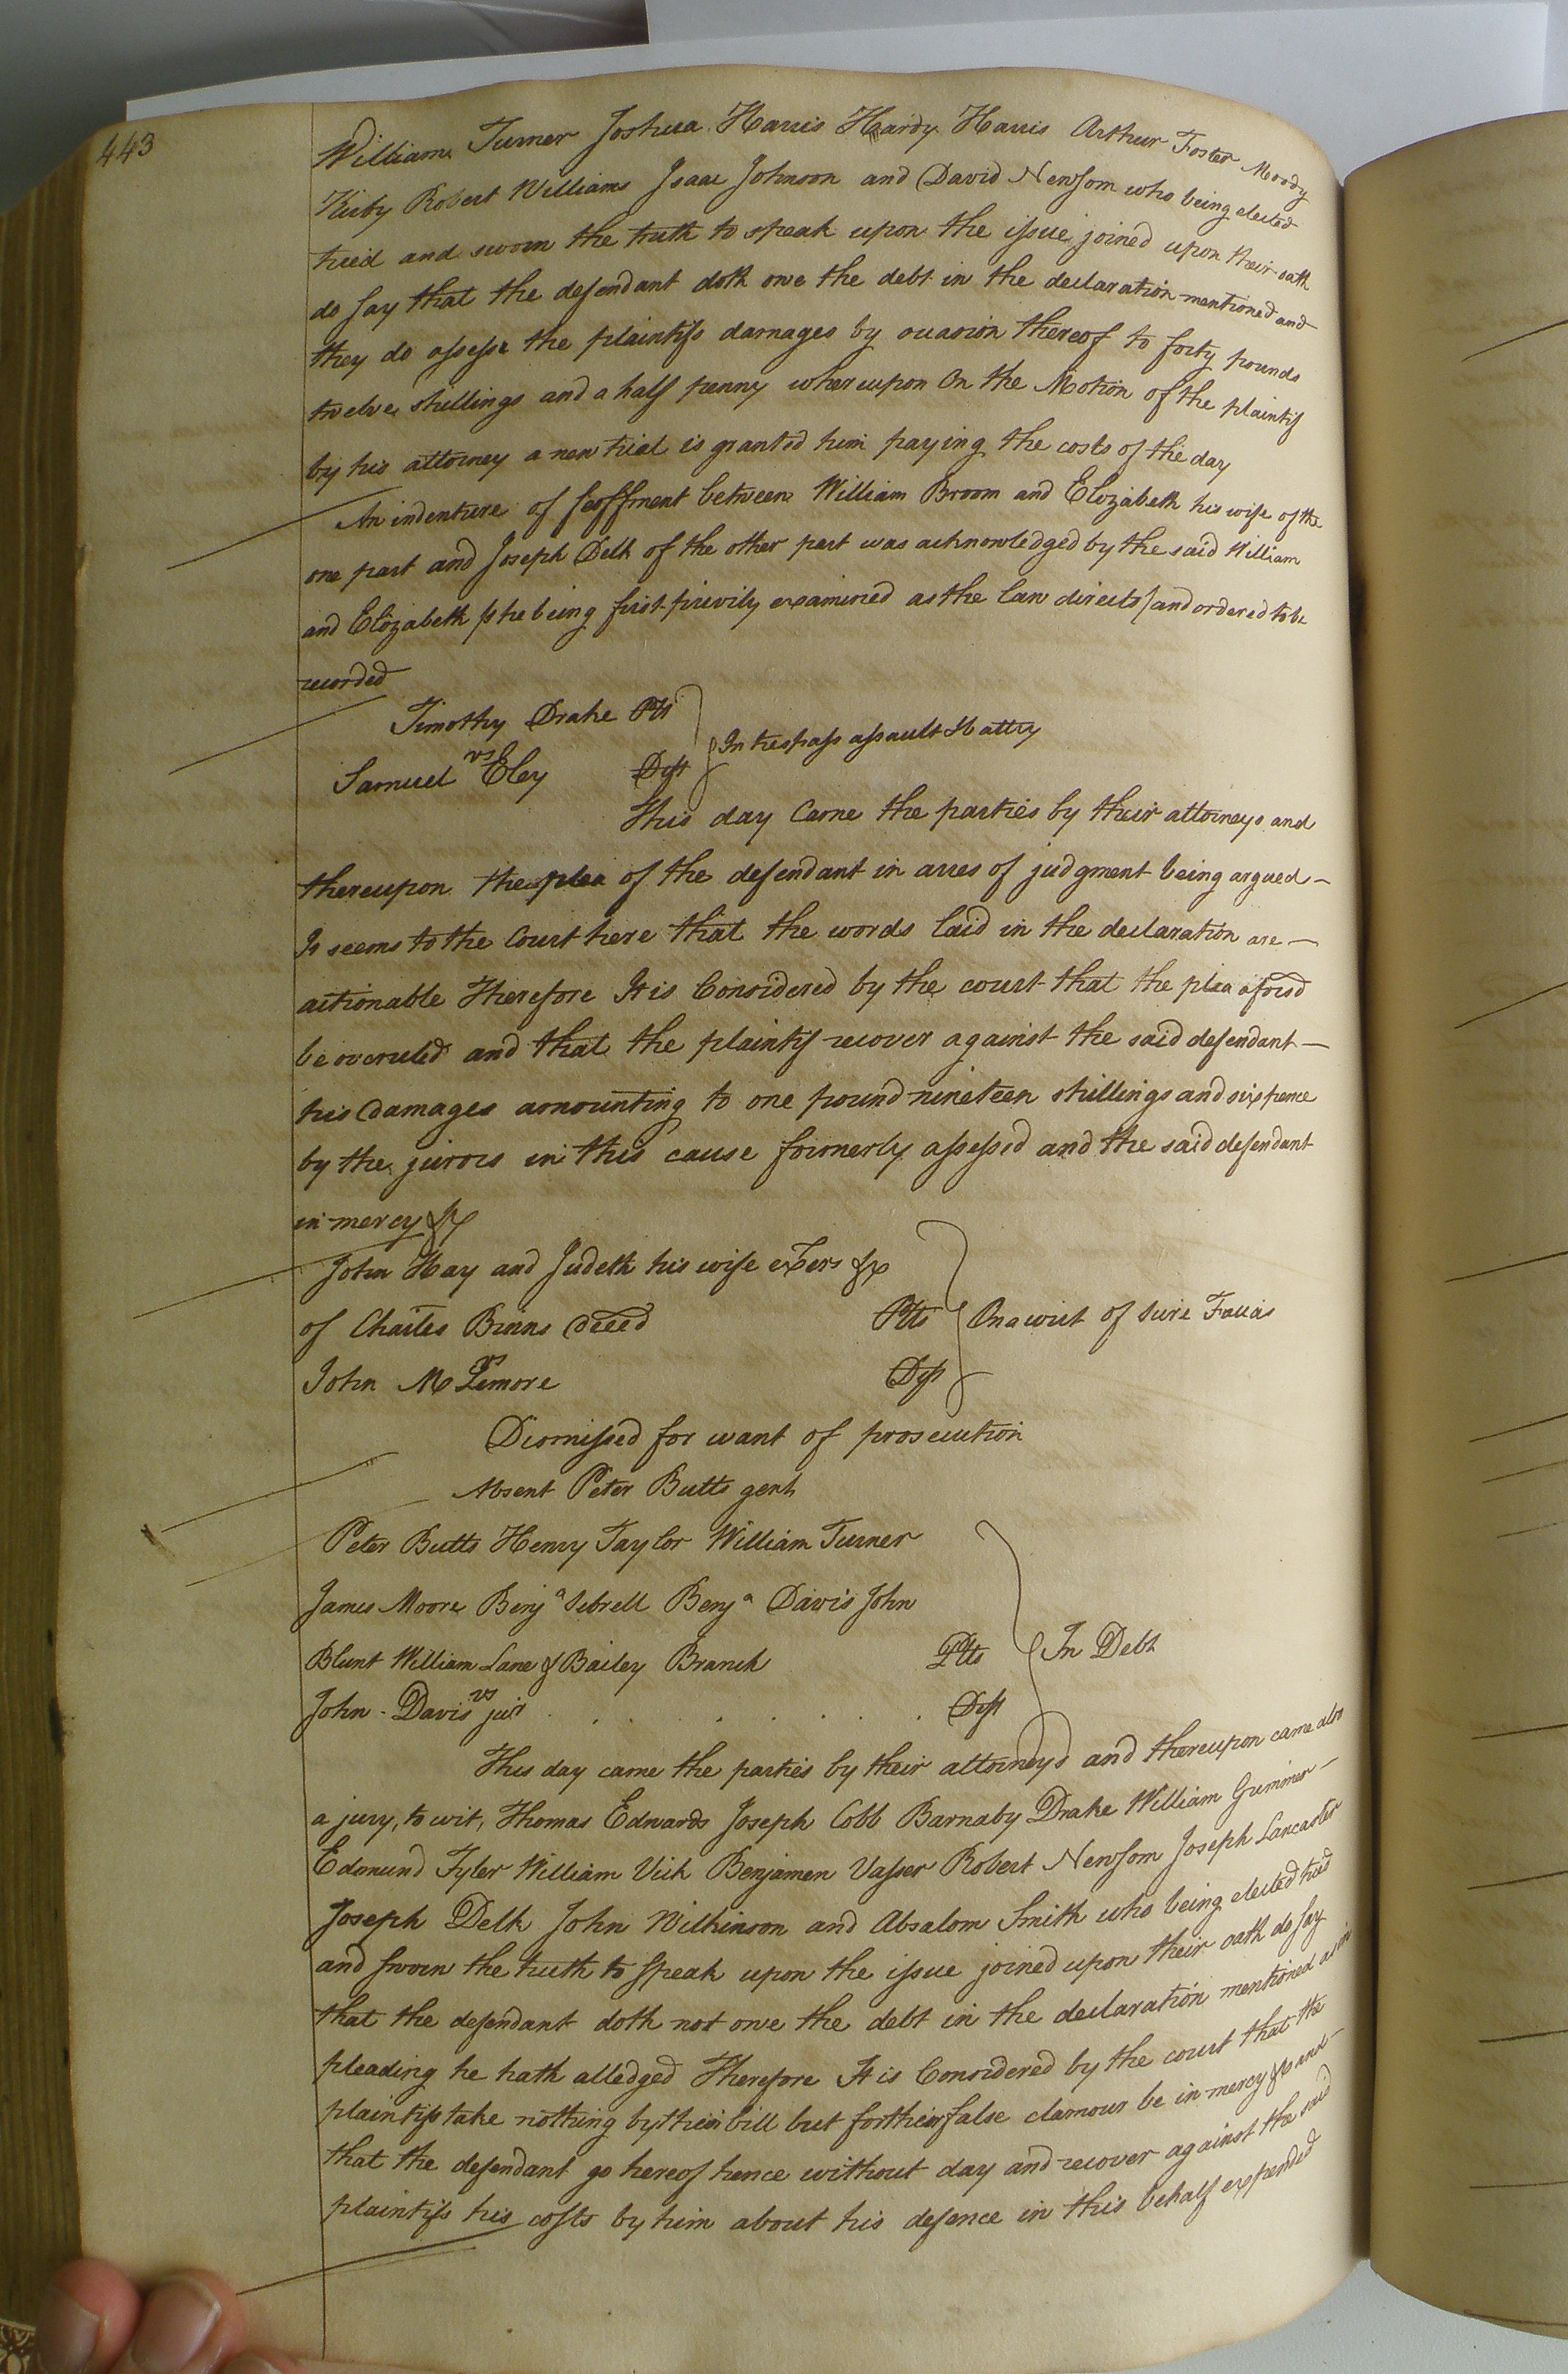 443
William Turner Joshua Harris Hardy Harris Arthur Foster Moody
Kirby Robert Williams Isaac Johnson and David Newsom who being elected
tried and sworn the truth to speak upon the issue joined upon their oath
do say that the defendant doth owe the debt in the declaration mentioned and
they do assess the plaintifs damages by occasion thereof to forty pounds
twelve shillings and a half penny whereupon On the Motion of the plaintif
by his attorney a new trial is granted him paying the costs of the day
An indenture of feoffment between William Broom and Elizabeth his wife of the
one part and Joseph Delk of the other part was acknowledged by the said William
and Elizabeth she being first privily examined as the law directs) and ordered to be
recorded
Timothy Drake Plt
vs
Samuel Eley Dft
In trespass assault & battry
This day Came the parties by their attorneys and
thereupon the plea of the defendant in arres of judgment being argued
It seems to the Court here that the words laid in the declaration are
actionable Therefore It is Considered by the court that the plea aforsd
be overruled and that the plaintif recover against the said defendant
his damages amounting to one pound nineteen shillings and sixpence
by the jurors in this cause formerly assessed and the said defendant
in mercy &c
John Hay and Judeth his wife exers &c
of Charles Binns deced Plts
vs
John McLemore Dft
On a writ of Scire Facias
Dismissed for want of prosecution
Absent Peter Butts gent
Peter Butts Henry Taylor William Turner
James Moore Benja Sebrell Benja Davis John
Blunt William Lane & Bailey Branch Plts
vs
John Davis junr . . . . . . . . Dft
In Debt
This day came the parties by their attorneys and thereupon came also
a jury, to wit, Thomas Edwards Joseph Cobb Barnaby Drake William Grimmer
Edmund Tyler William Vick Benjamen Vasser Robert Newsom Joseph Lancaster
Joseph Delk John Wilkinson and Absalom Smith who being elected tried
and sworn the truth to speak upon the issue joined upon their oath do say
that the defendant doth not owe the debt in the declaration mentioned as in
pleading he hath alledged Therefore It is Considered by the court that the
plaintifs take nothing by their bill but for their false clamour be in mercy &c and
that the defendant go hereof hence without day and recover against the said
plaintifs his costs by him about his defence in this behalf expended